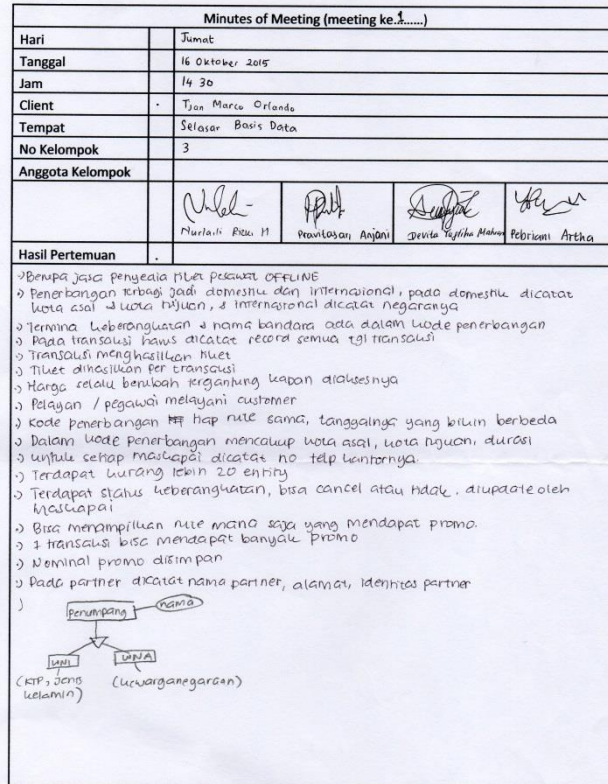 Minutes of Meeting (meeting ke.1......)
Hari Jumat
Tanggal 16 Oktober 2015
Jam 14 30
Client Tjan Marco Orlando
Tempat Selasar Basis Data
No Kelompok 3
Anggota Kelompok
Nurlaili Rizki M Pravitasari Anjani Devita Pebriani Artha
Hasil Pertemuan
Berupa jasa penyedia tiket pesawat OFFLINE
Penerbangan terbagi jadi domestik dan internasional, pada domestik dicatat
kota asal & kota tujuan, & internasional dicatat negaranya
Termina keberangkatan & nama bandara ada dalam kode penerbangan
Pada transaksi harus dicatat record semua tgl transaksi
Transaksi menghasilkan tiket
Tiket dihasilkan per transaksi
Harga selalu berubah tergantung kapan diaksesnya
Pelayan / pegawai melayani customer
Kode penerbangan tiap rute sama, tanggalnya yang bikin berbeda
Dalam kode penerbangan mencakup kota asal, kota tujuan, durasi
untuk setiap maskapai dicatat no telp kantornya
Terdapat kurang lebih 20 entity
Terdapat status keberangkatan, bisa cancel atau tidak, diupdate oleh
maskapai
Bisa menampilkan rute mana saja yang mendapat promo.
1 transaksi bisa mendapat banyak promo
Nominal promo disimpan
Pada partner dicatat nama partner, alamat, identitas partner
penumpang nama
WNI WNA
(KTP, jenis kelamin) (kewarganegaraan)